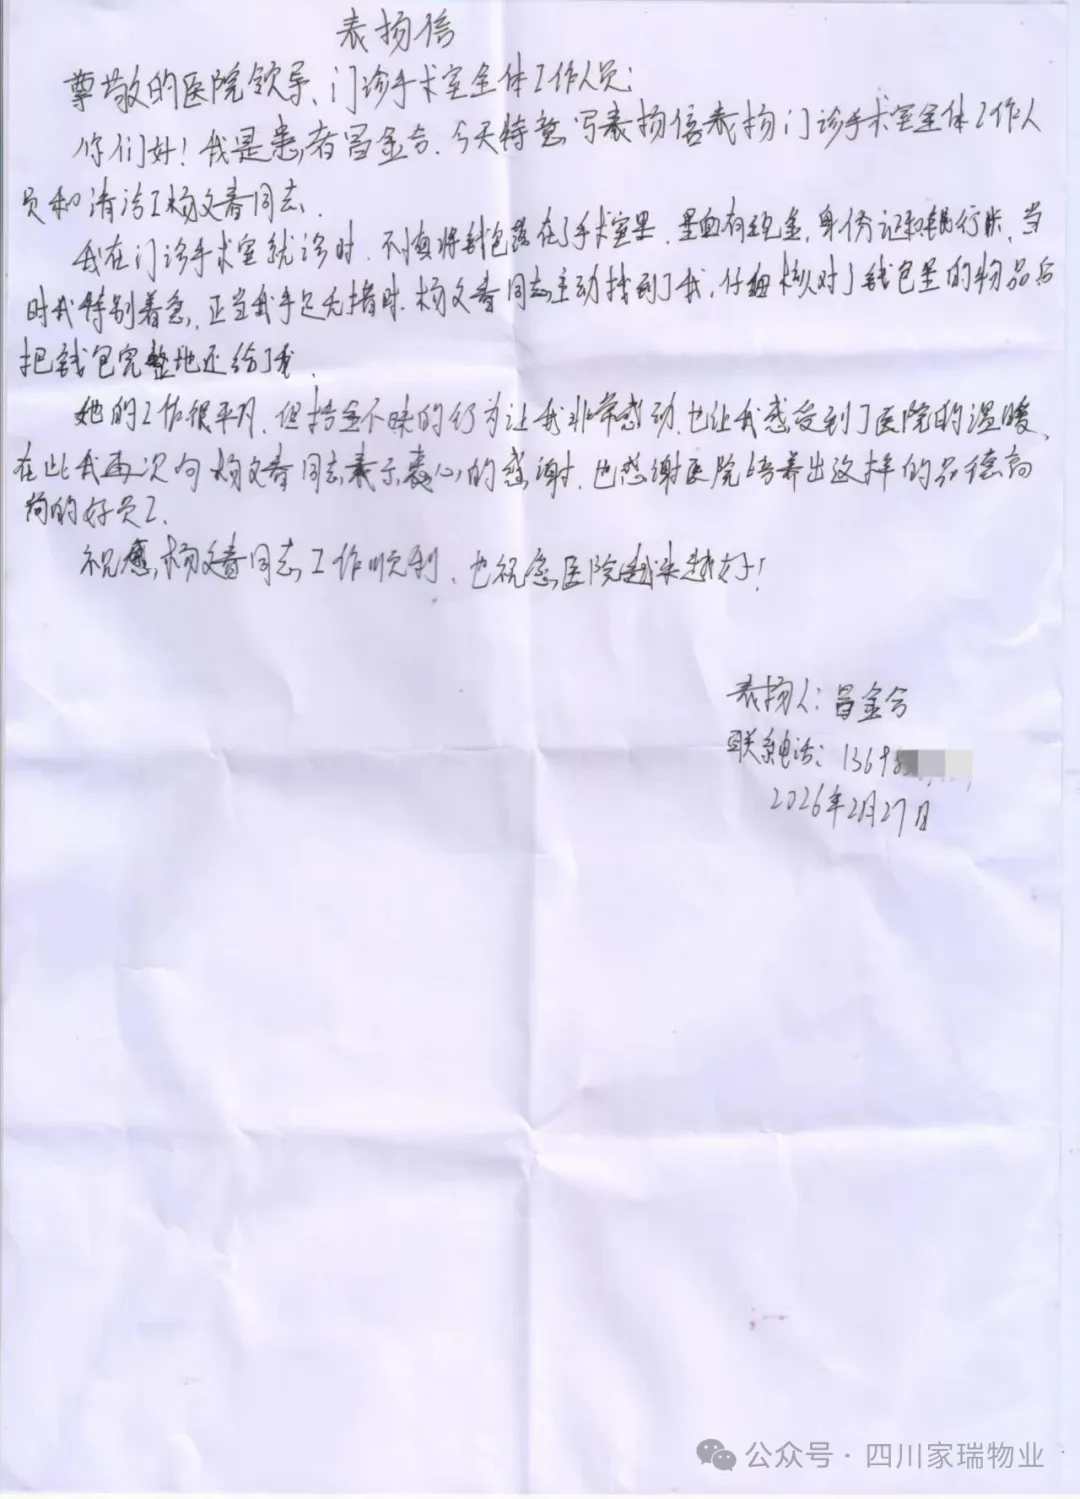 表扬信
尊敬的医院领导、门诊手术室全体工作人员:
你们好!我是患者冒金合.今天特意写表扬信表扬门诊手术室全体工作人
员和清洁工杨文春同志.
我在门诊手术室就诊时.不慎将钱包落在了手术室里.里面有现金,身份证和银行卡.当
时我特别着急.正当我手足无措时.杨文春同志主动找到了我.仔细核对了钱包里的物品后
把钱包完整地还给了我.
她的工作很平凡.但拾金不昧的行为让我非常感动.也让我感受到了医院的温暖.
在此我再次向杨文春同志表示衷心的感谢.也感谢医院培养出这样的品德高
尚的好员工.
祝愿杨文春同志工作顺利.也祝愿医院越来越好!
表扬人:冒金合
联系电话:13698
2026年2月27日
公众号·四川家瑞物业